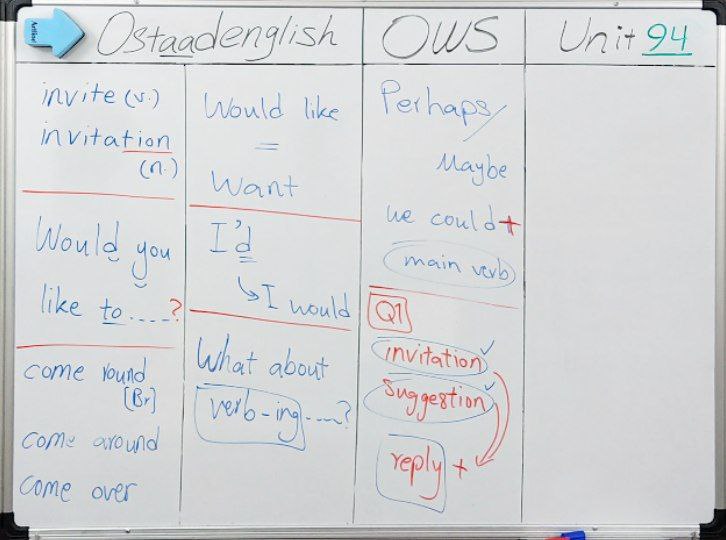 Artline
Ostaadenglish
OWS
Unit 94
invite (v.)
invitation
(n.)
Would you
like to.....?
come round
[Br]
come around
come over
Would like
=
Want
I'd
↳ I would
What about
verb-ing.....?
Perhaps/
Maybe
we could +
main verb
Q1
invitation ✓
suggestion ✓
reply +